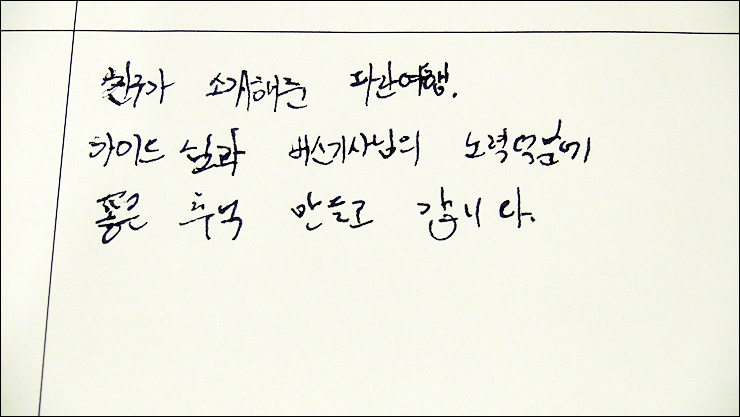 친구가 소개해준 파란여행.
가이드 님과 버스기사님의 노력덕분에
좋은 추억 만들고 갑니다.